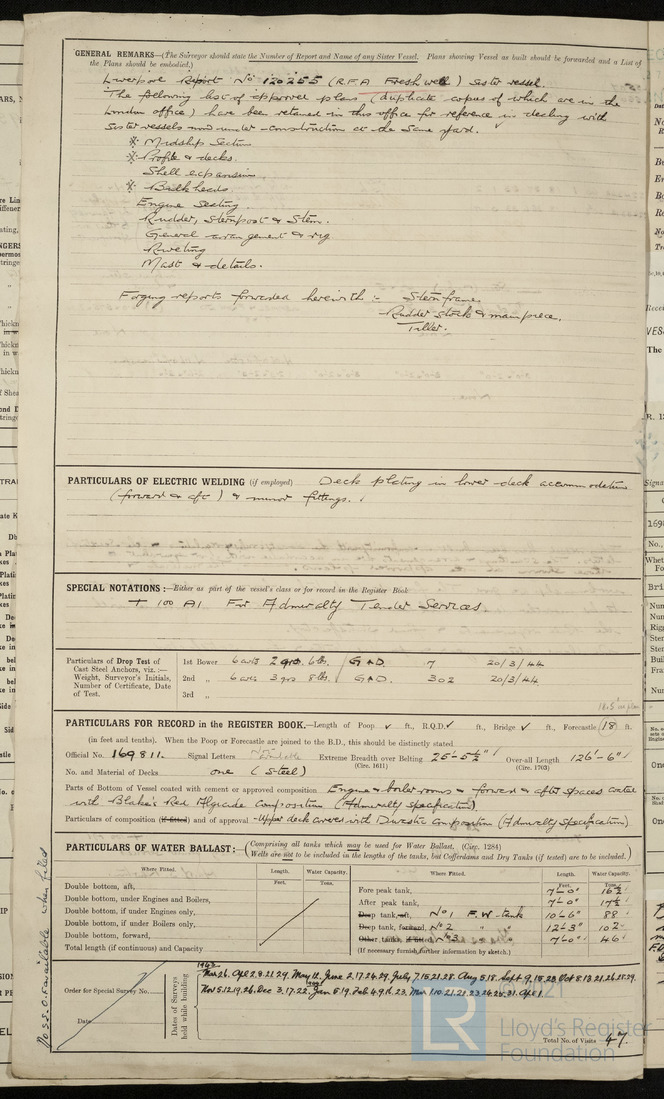 GENERAL REMARKS—(The Surveyor should state the Number of Report and Name of any Sister Vessel. Plans showing Vessel as built should be forwarded and a List of
the Plans should be embodied.)
Liverpool Report No 120255 (R.F.A Freshwell) Sister vessel.
The following list of approved plans (duplicate copies of which are in the
London office) have been retained in this office for reference in dealing with
Sister vessels now under construction at the same yard.
※ Midship Section
※ Profile & decks.
Shell expansion
※ Bulkheads
Engine Seating
Rudder, Sternpost & Stem.
General arrangement & rig
Riveting
Mast & details.
Forging reports forwarded herewith :- Stern frame.
Rudder stock & main piece.
Tiller.
PARTICULARS OF ELECTRIC WELDING (if employed) Deck plating in lower deck accommodation
(forward & aft) & minor fittings.
SPECIAL NOTATIONS:—Either as part of the vessel's class or for record in the Register Book
+ 100 A1 For Admiralty Tender Services
Particulars of Drop Test of
Cast Steel Anchors, viz. :—
Weight, Surveyor's Initials,
Number of Certificate, Date
of Test.
1st Bower 6 cwts 2 qrs. 6 lbs. G & D. 7 20/3/44
2nd „ 6 cwts 3 qrs 8 lbs. G & D. 302 20/3/44
3rd „
PARTICULARS FOR RECORD in the REGISTER BOOK.—Length of Poop ✓ ft., R.Q.D. ✓ ft., Bridge ✓ ft., Forecastle (18) ft.
(in feet and tenths). When the Poop or Forecastle are joined to the B.D., this should be distinctly stated
Official No. 169811. Signal Letters Extreme Breadth over Belting 25'-5½" Over-all Length 126'-6"
(Circ. 1611) (Circ. 1703)
No. and Material of Decks one (Steel)
Parts of Bottom of Vessel coated with cement or approved composition Engine & boiler rooms & forward & after spaces coated
with Blakes Red Composition (Admiralty specification)
Particulars of composition (if fitted) and of approval - Upper deck covered with Composition (Admiralty Specification)
PARTICULARS OF WATER BALLAST:— (Comprising all tanks which may be used for Water Ballast. (Circ. 1284)
Wells are not to be included in the lengths of the tanks, but Cofferdams and Dry Tanks (if tested) are to be included.)
Where Fitted. Length. Water Capacity. Where Fitted. Length. Water Capacity.
Feet. Tons. Feet. Tons.
Double bottom, aft,
Double bottom, under Engines and Boilers,
Double bottom, if under Engines only,
Double bottom, if under Boilers only,
Double bottom, forward,
Total length (if continuous) and Capacity
Fore peak tank, 7'-0" 16½
After peak tank, 7'-0" 17½
Deep tank, aft, No 1 F.W. tank 10'-6" 88
Deep tank, forward, No 2 „ „ 12'-3" 102
Other tanks, if fitted, No 3 7'-0" 46
(If necessary furnish further information by sketch.)
No S.S.O. available when filed
Order for Special Survey No.
Date
Dates of Surveys
held while building
Nov 5.12.19.26. Dec 3.17.22
Total No. of Visits 47.
© 2021
LR
Lloyd's Register
Foundation